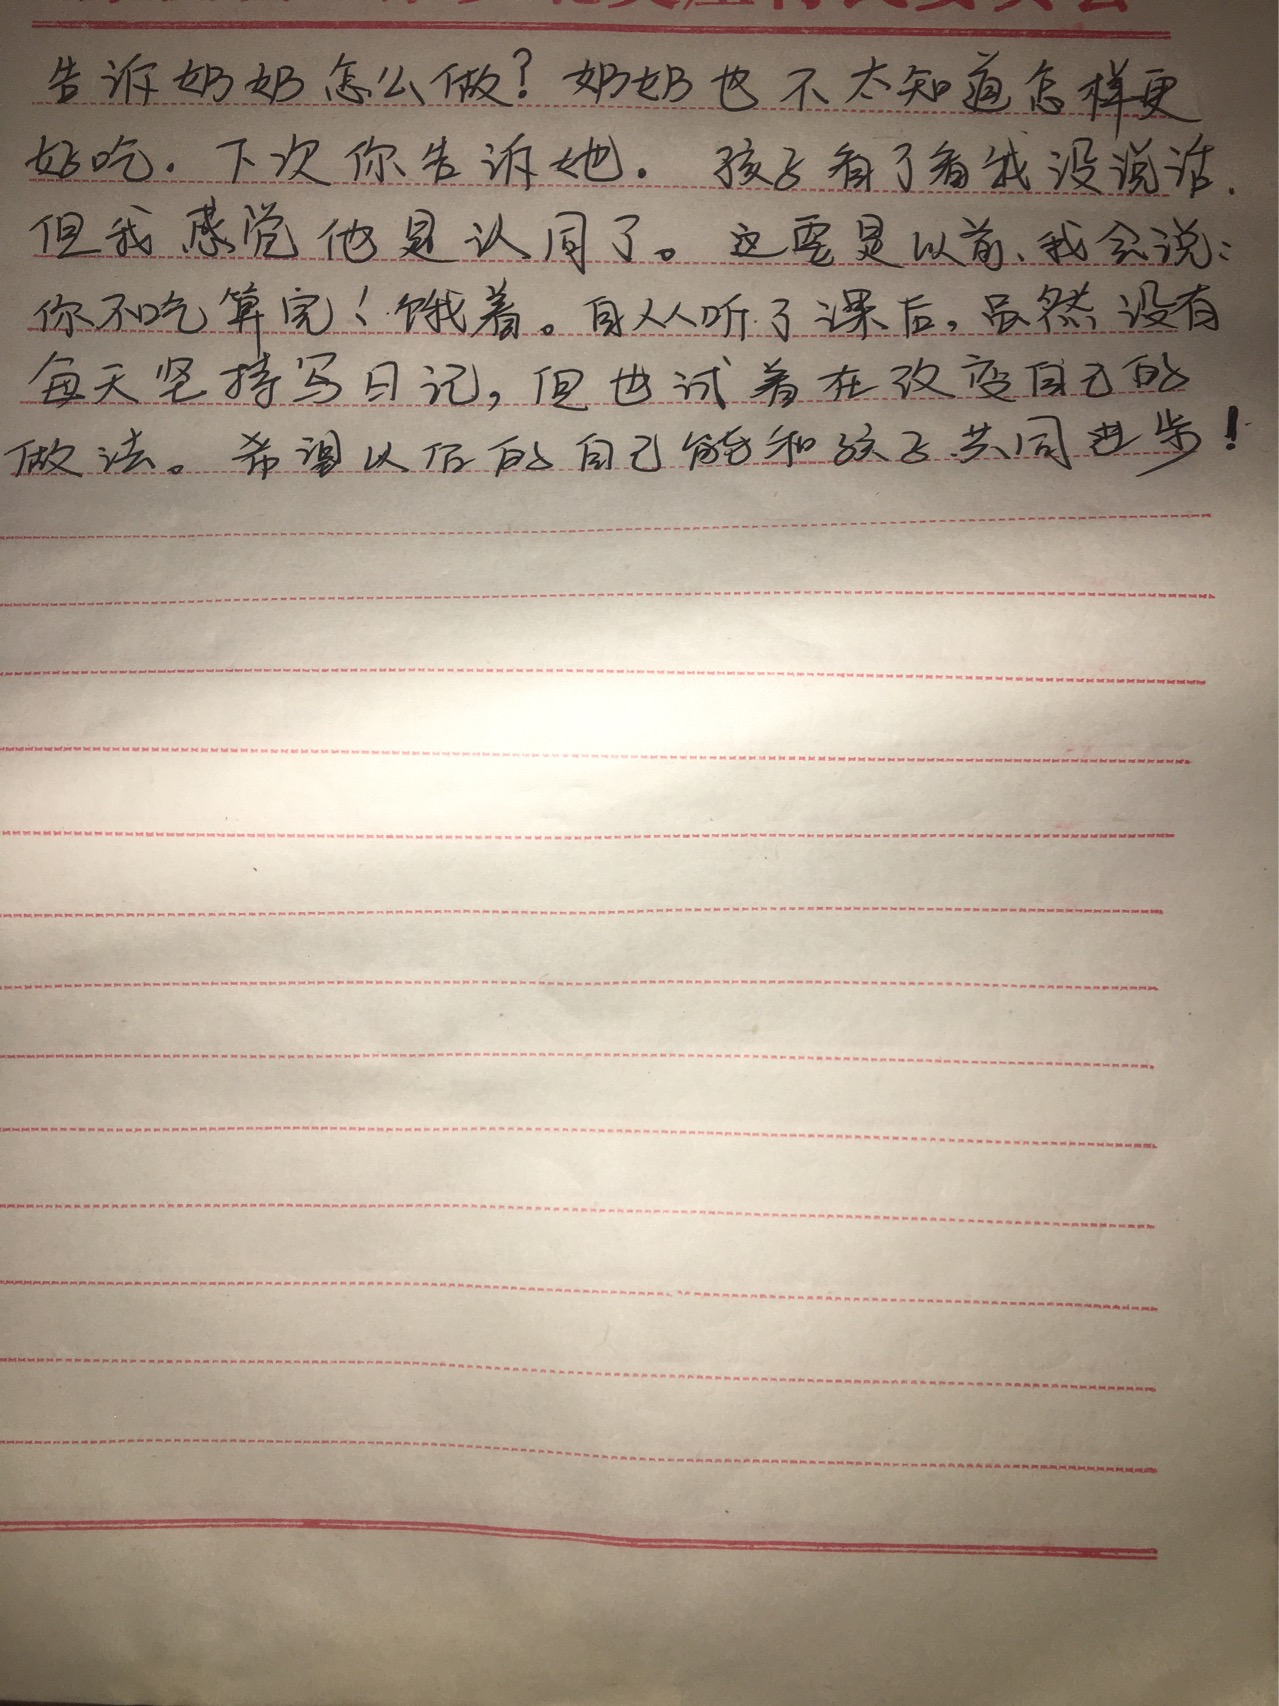 村民委员会
告诉奶奶怎么做？奶奶也不太知道怎样更
好吃．下次你告诉她．孩子看了看我没说话．
但我感觉他是认同了。这要是以前、我会说：
你不吃算完！饿着。自从听了课后，虽然没有
每天坚持写日记，但也试着在改变自己的
做法。希望以后的自己能和孩子共同进步！